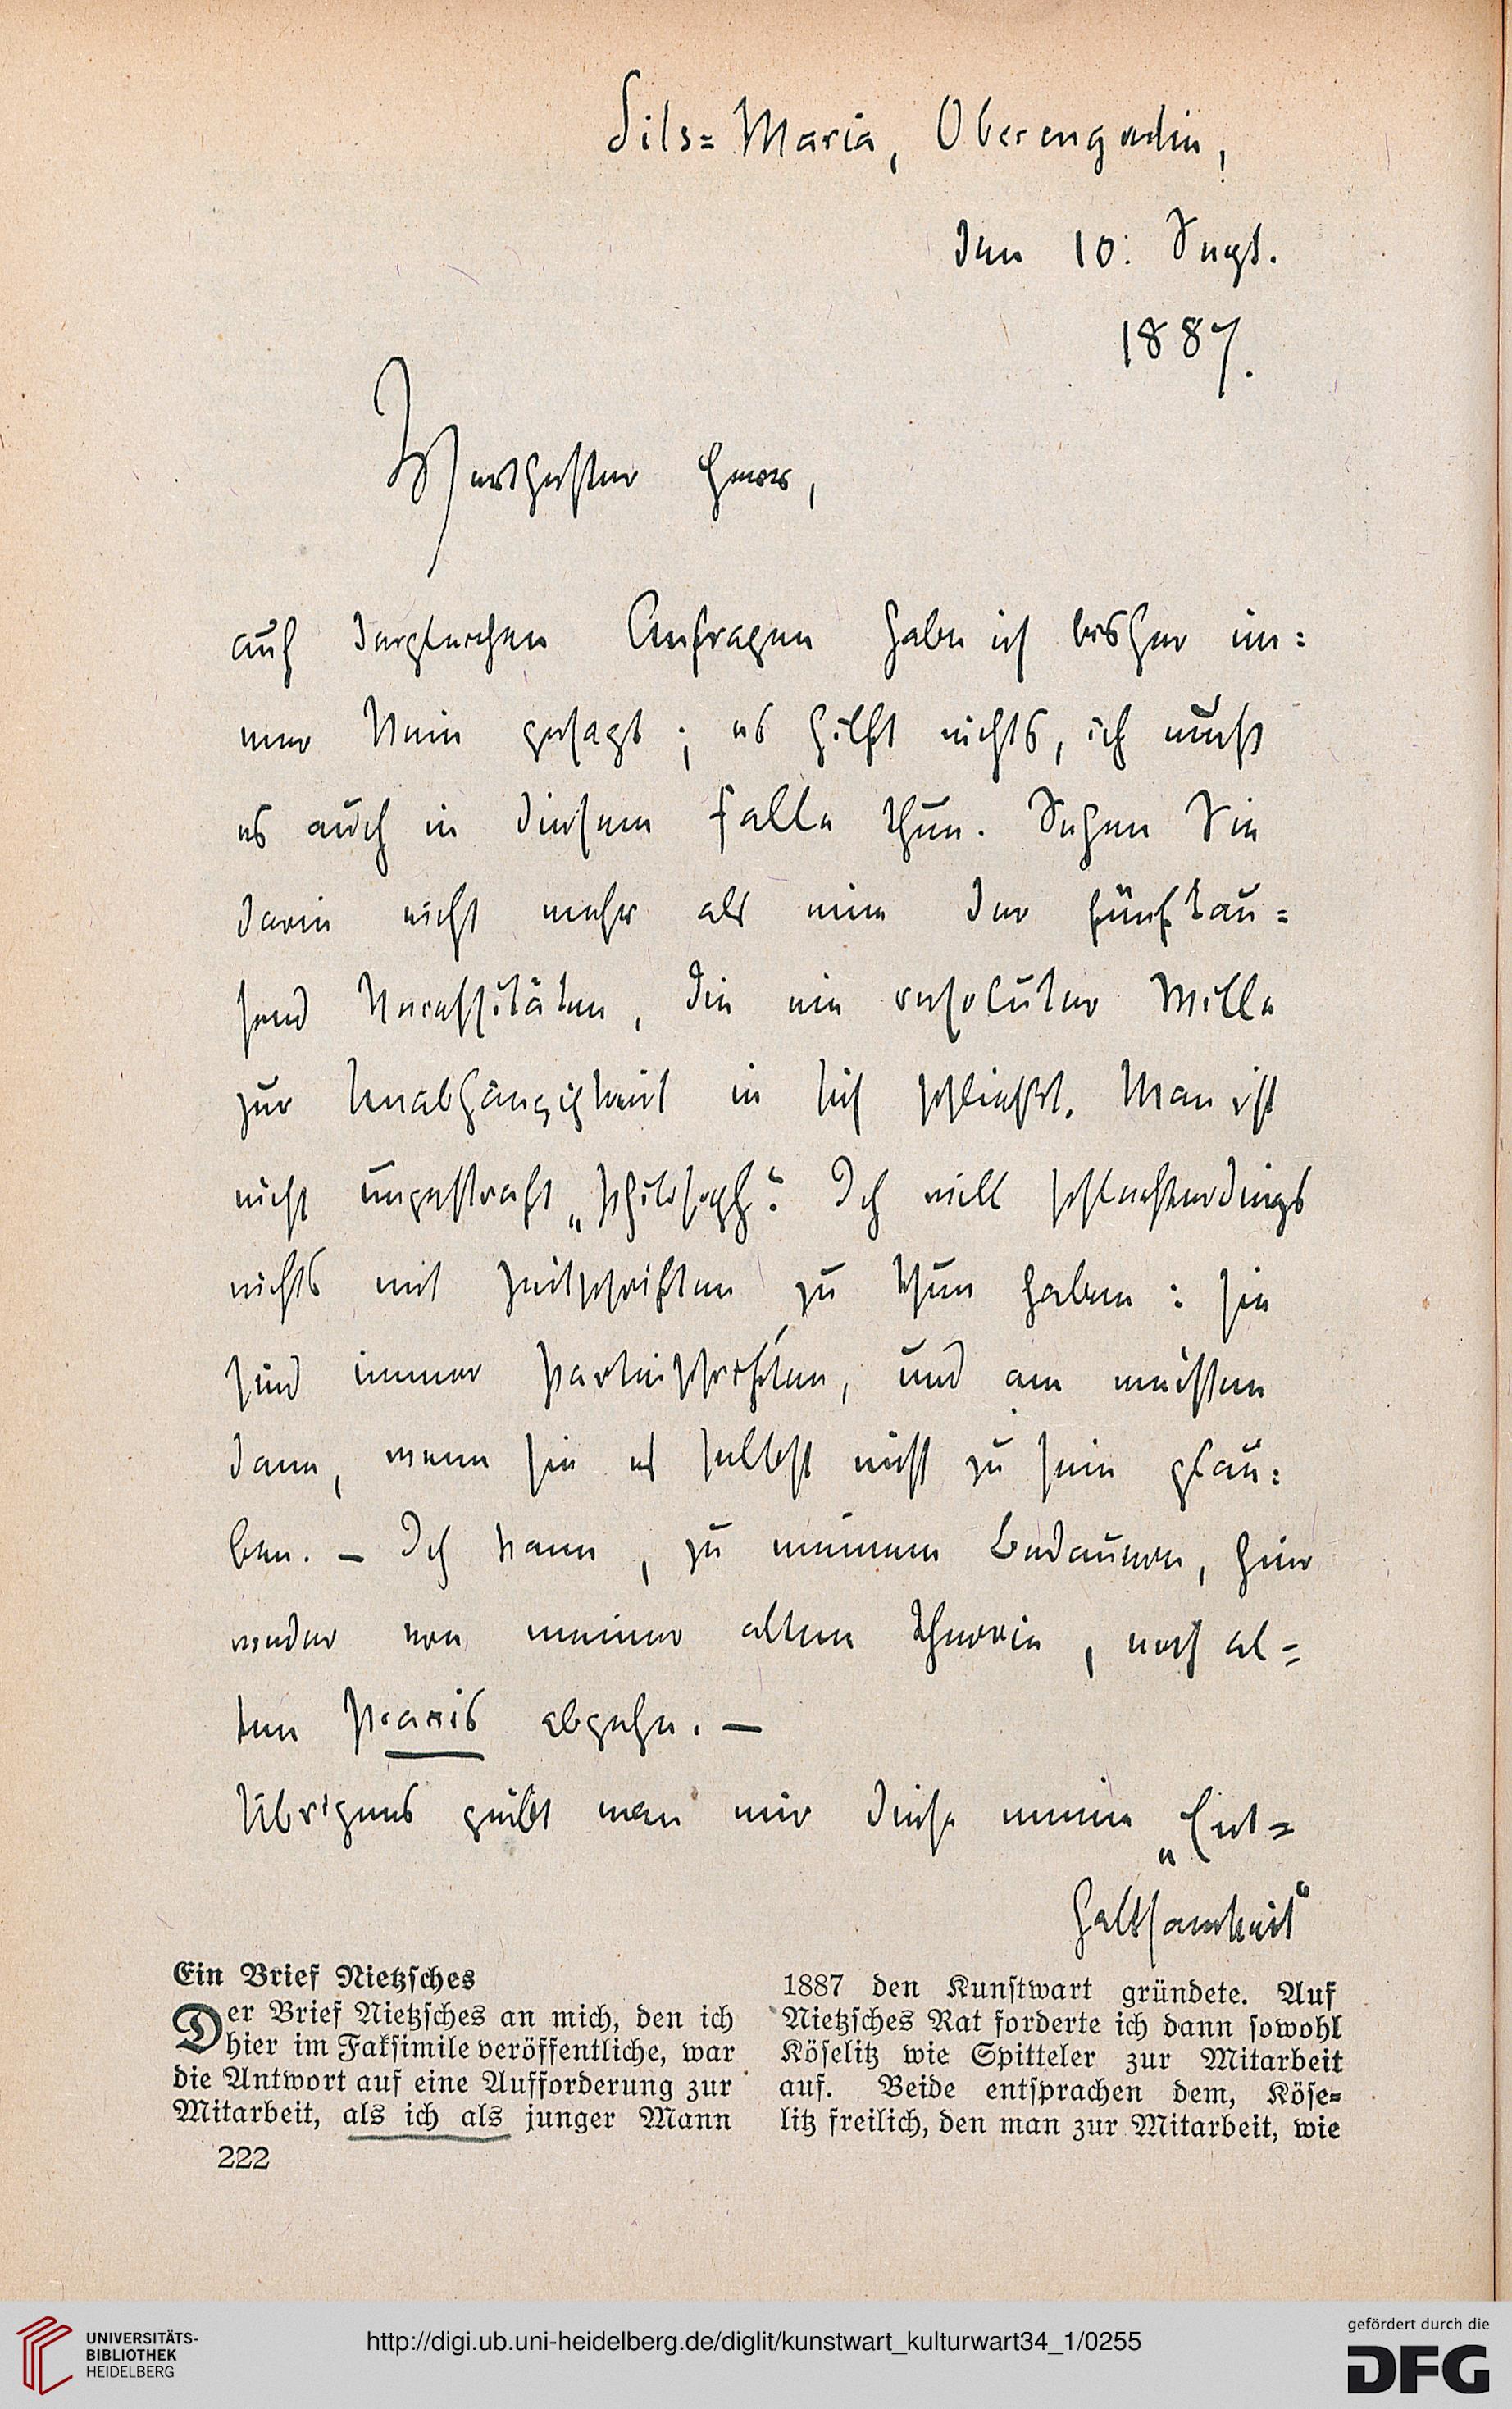 Sils=Maria, Oberengadin,
den 10. Sept.
1887.
Werthester Herr,
auf dergleichen Anfragen habe ich bisher im=
mer Nein gesagt; es hilft nichts, ich muß
es auch in diesem Falle thun. Sehen Sie
darin nicht mehr als eine der fünftau=
send Necessitäten, die ein resoluter Wille
zur Unabhängigkeit in sich schließt. Man ist
nicht ungestraft „Philosoph“. Ich will schlechterdings
nichts mit Zeitschriften zu thun haben: sie
sind immer Parteischriften, und am meisten
dann, wenn sie es selbst nicht zu sein glau=
ben. – Ich kann, zu meinem Bedauern, hier
weder von meiner alten Theorie, noch al=
ten Praxis abgehn. –
Übrigens giebt man mir diese meine „Ent=
haltsamkeit“
Ein Brief Nietzsches
Der Brief Nietzsches an mich, den ich
hier im Faksimile veröffentliche, war
die Antwort auf eine Aufforderung zur
Mitarbeit, als ich als junger Mann
222
1887 den Kunstwart gründete. Auf
Nietzsches Rat forderte ich dann sowohl
Köselitz wie Spitteler zur Mitarbeit
auf. Beide entsprachen dem, Köse=
litz freilich, den man zur Mitarbeit, wie
UNIVERSITÄTS-
BIBLIOTHEK
HEIDELBERG
http://digi.ub.uni-heidelberg.de/diglit/kunstwart_kulturwart34_1/0255
gefördert durch die
DFG